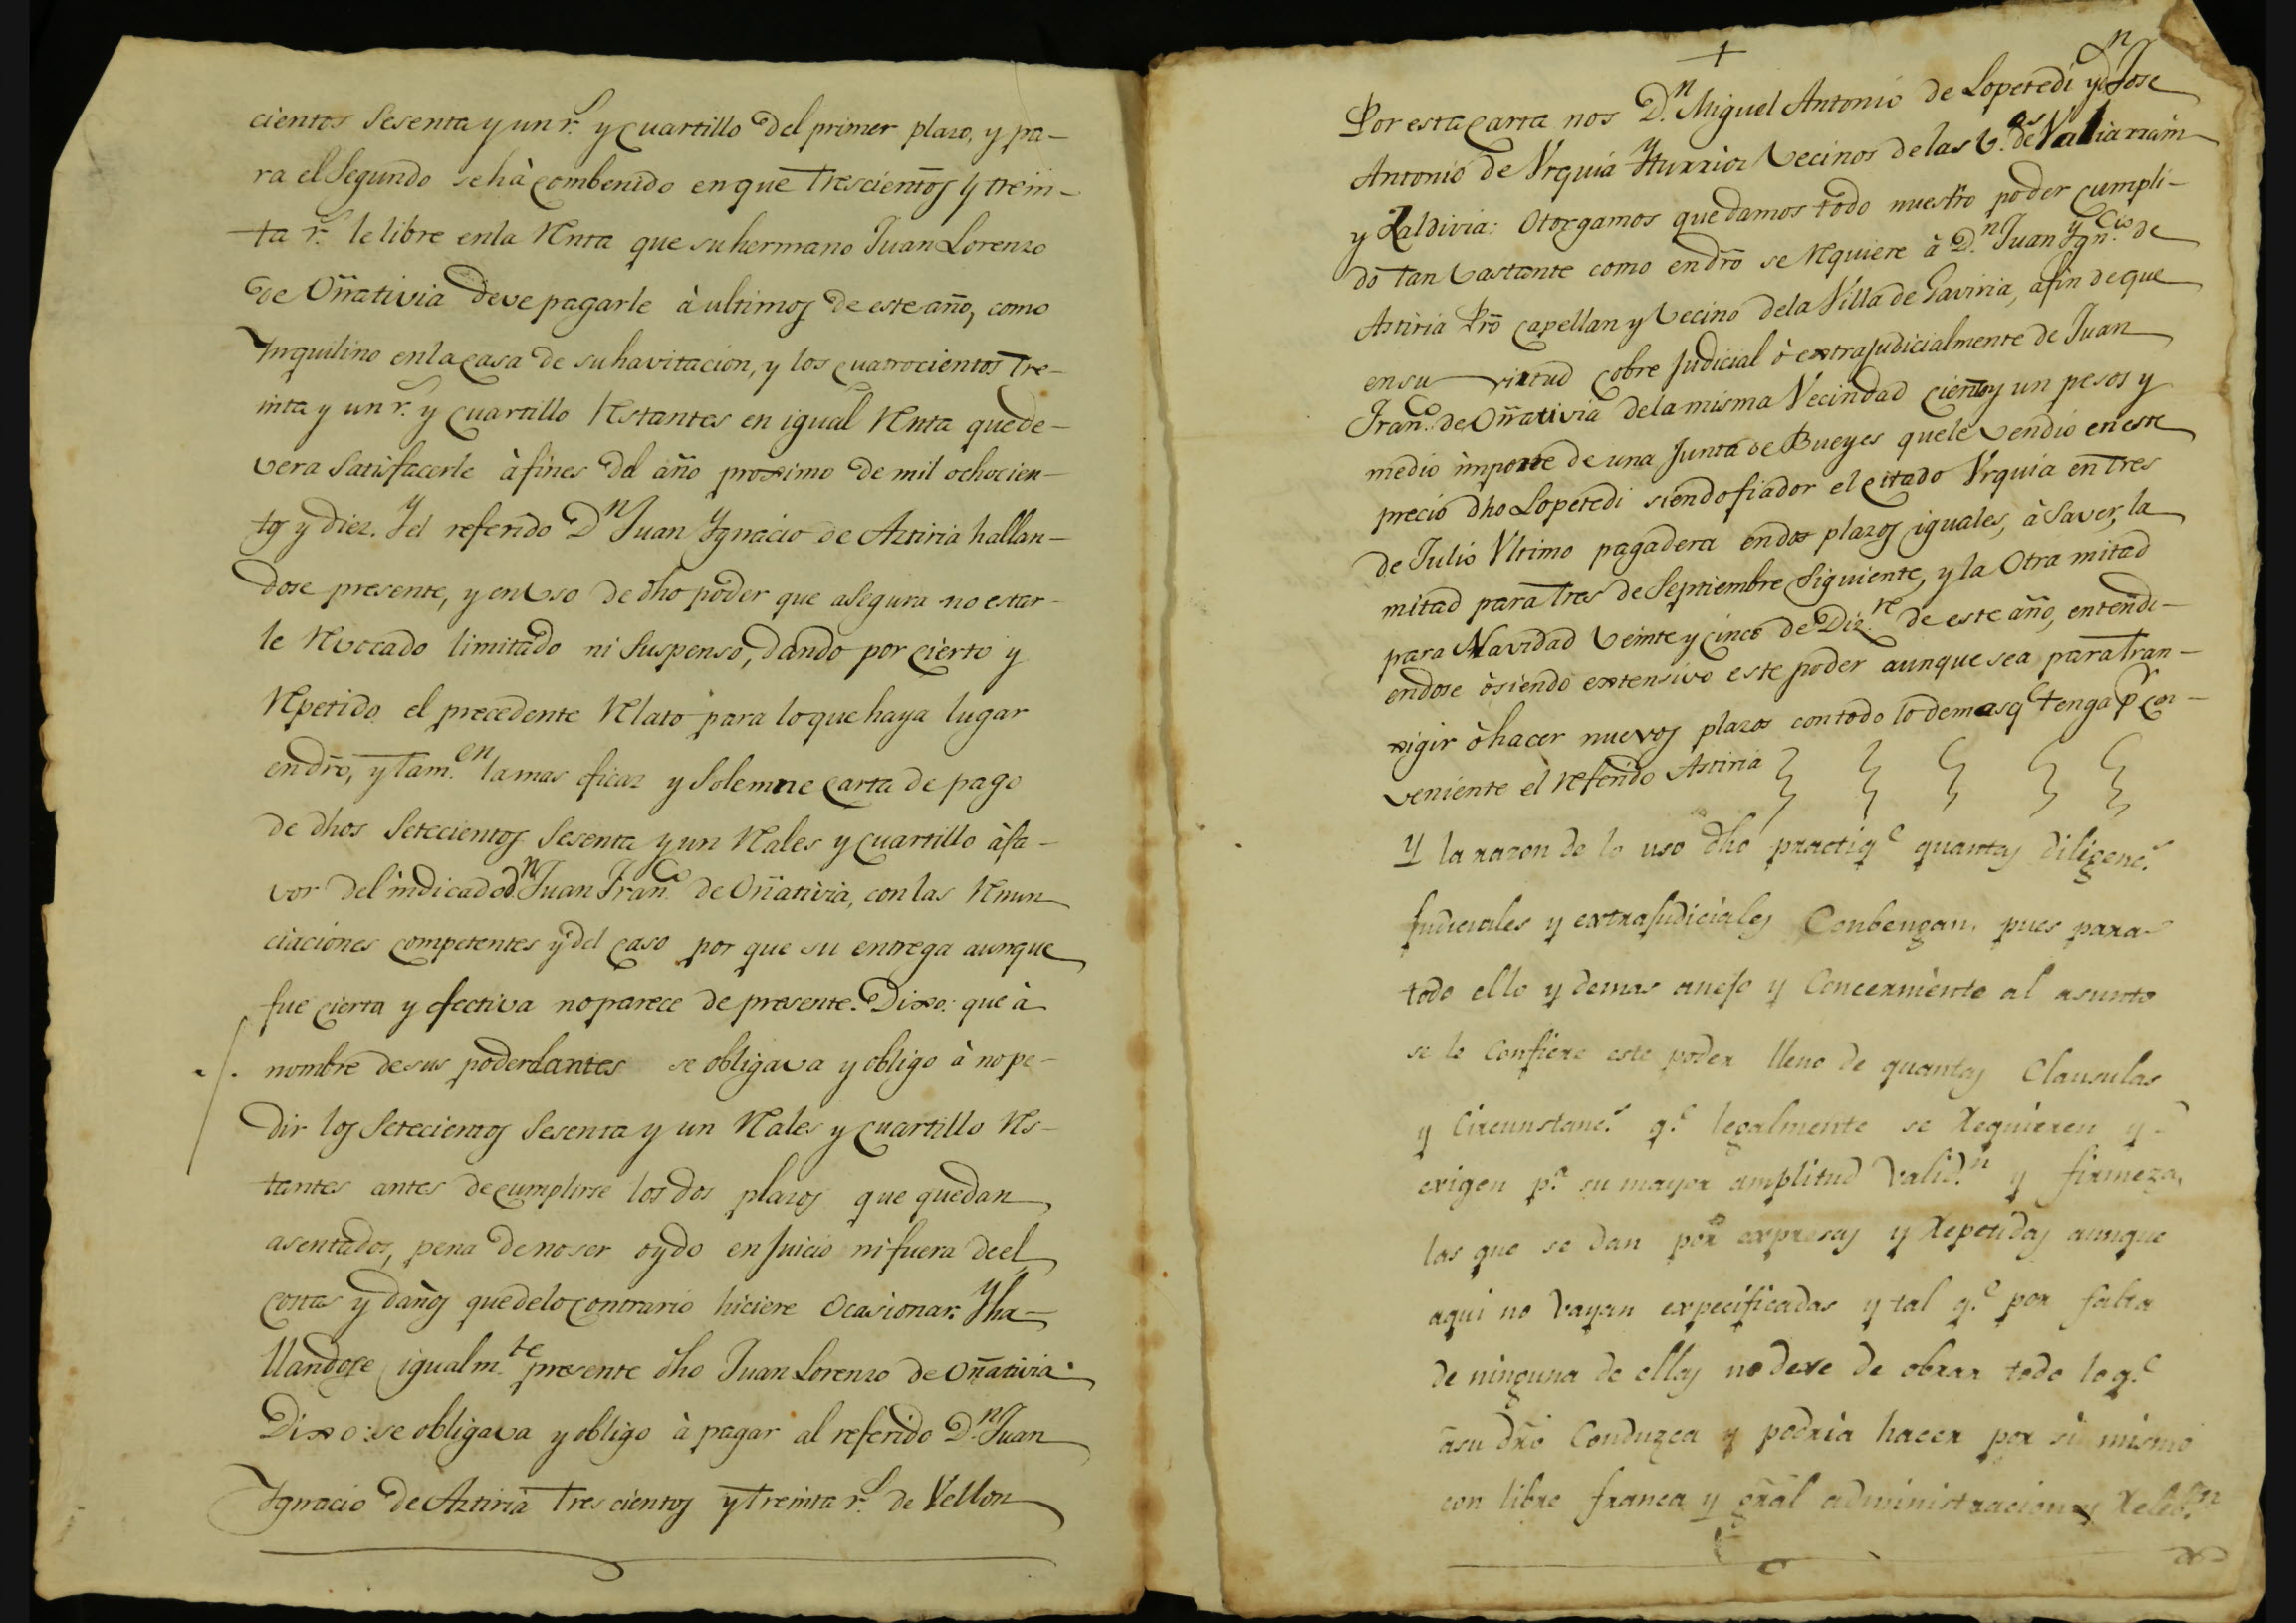 cientos Sesenta y un r.s y cuartillo del primer plazo, y pa-
ra el Segundo se hà combenido en que trescientos y trein-
ta r.s le libre en la Renta que su hermano Juan Lorenzo
de Oñativia deve pagarle à ultimos de este año, como
Ynquilino en la casa de su havitacion, y los quatrocientos tre-
inta y un r.s y cuartillo Restantes en igual Renta que de-
vera Satisfacerle à fines del año proximo de mil ochocien-
tos y diez. Y el referido Dn Juan Ygnacio de Aztiria hallan-
dose presente, y en Uso de dho poder que asegura no estar-
le Revocado limitado ni Suspenso, dando por cierto y
Repetido el precedente Relato para lo que haya lugar
en dro, y tam.en la mas eficaz y Solemne carta de pago
de dhos Setecientos Sesenta y un Reales y cuartillo à fa-
vor del indicado dn Juan Fran.co de Oñativia, con las Renun
ciaciones competentes y del caso por que su entrega aunque
fue cierta y efectiva no parece de presente. Dixo: que à
nombre de sus poderdantes se obligava y obligo à no pe-
dir los Setecientos Sesenta y un Reales y cuartillo Res-
tantes antes de cumplirse los dos plazos que quedan
asentados, pena de no ser oydo en Juicio ni fuera de el
costas y daños que de lo contrario hiciere ocasionar. Y ha-
llandose igualm.te presente dho Juan Lorenzo de Oñativia
Dixo: se obligava y obligo à pagar al referido D.n Juan
Ygnacio de Aztiria trescientos y treinta r.s de Vellon
+
Por esta carta nos D.n Miguel Antonio de Lopetedi y dn Jose
Antonio de Vrquia Yturrioz Vecinos de las V.as de
y Zaldivia: Otorgamos que damos todo nuestro poder cumpli-
do tan Vastante como en dro se Requiere à D.n Juan Ygn.cio de
Aztiria Pro Capellan y Vecino de la Villa de Gaviria, afin de que
en su virtud cobre Judicial ò extrajudicialmente de Juan
Fran.co de Oñativia de la misma Vecindad ciento y un pesos y
medio importe de una Junta de Bueyes que le vendio en este
precio dho Lopetedi siendo fiador el citado Vrquia en tres
de Julio Vltimo pagadera en dos plazos iguales, à Saver, la
mitad para tres de Septiembre Siguiente, y la Otra mitad
para Navidad Veinte y cinco de Diz.re de este año, entendi-
endose ò siendo extensivo este poder aunque sea para tran-
sigir ò hacer nuevos plazos con todo lo demas q.e tenga p.r con-
veniente el referido Astiria
Y la razon de lo uso dho practiq.e quantas diligenc.s
Judiciales y extrajudiciales Conbengan, pues para
todo ello y demas anejo y Concerniente al asunto
se le Confiere este poder lleno de quantas Clausulas
y Circunstanc.s q.e legalmente se Requieren y
exigen p.a su mayor amplitud valid.n y firmeza,
las que se dan por expresas y Repetidas aunque
aqui no vayan expecificadas y tal q.e por falta
de ninguna de ellas no dexe de obrar todo lo q.e
à su dro Conduzca y podria hacer por si mismo
con libre franca y gñal administracion y Relev.on